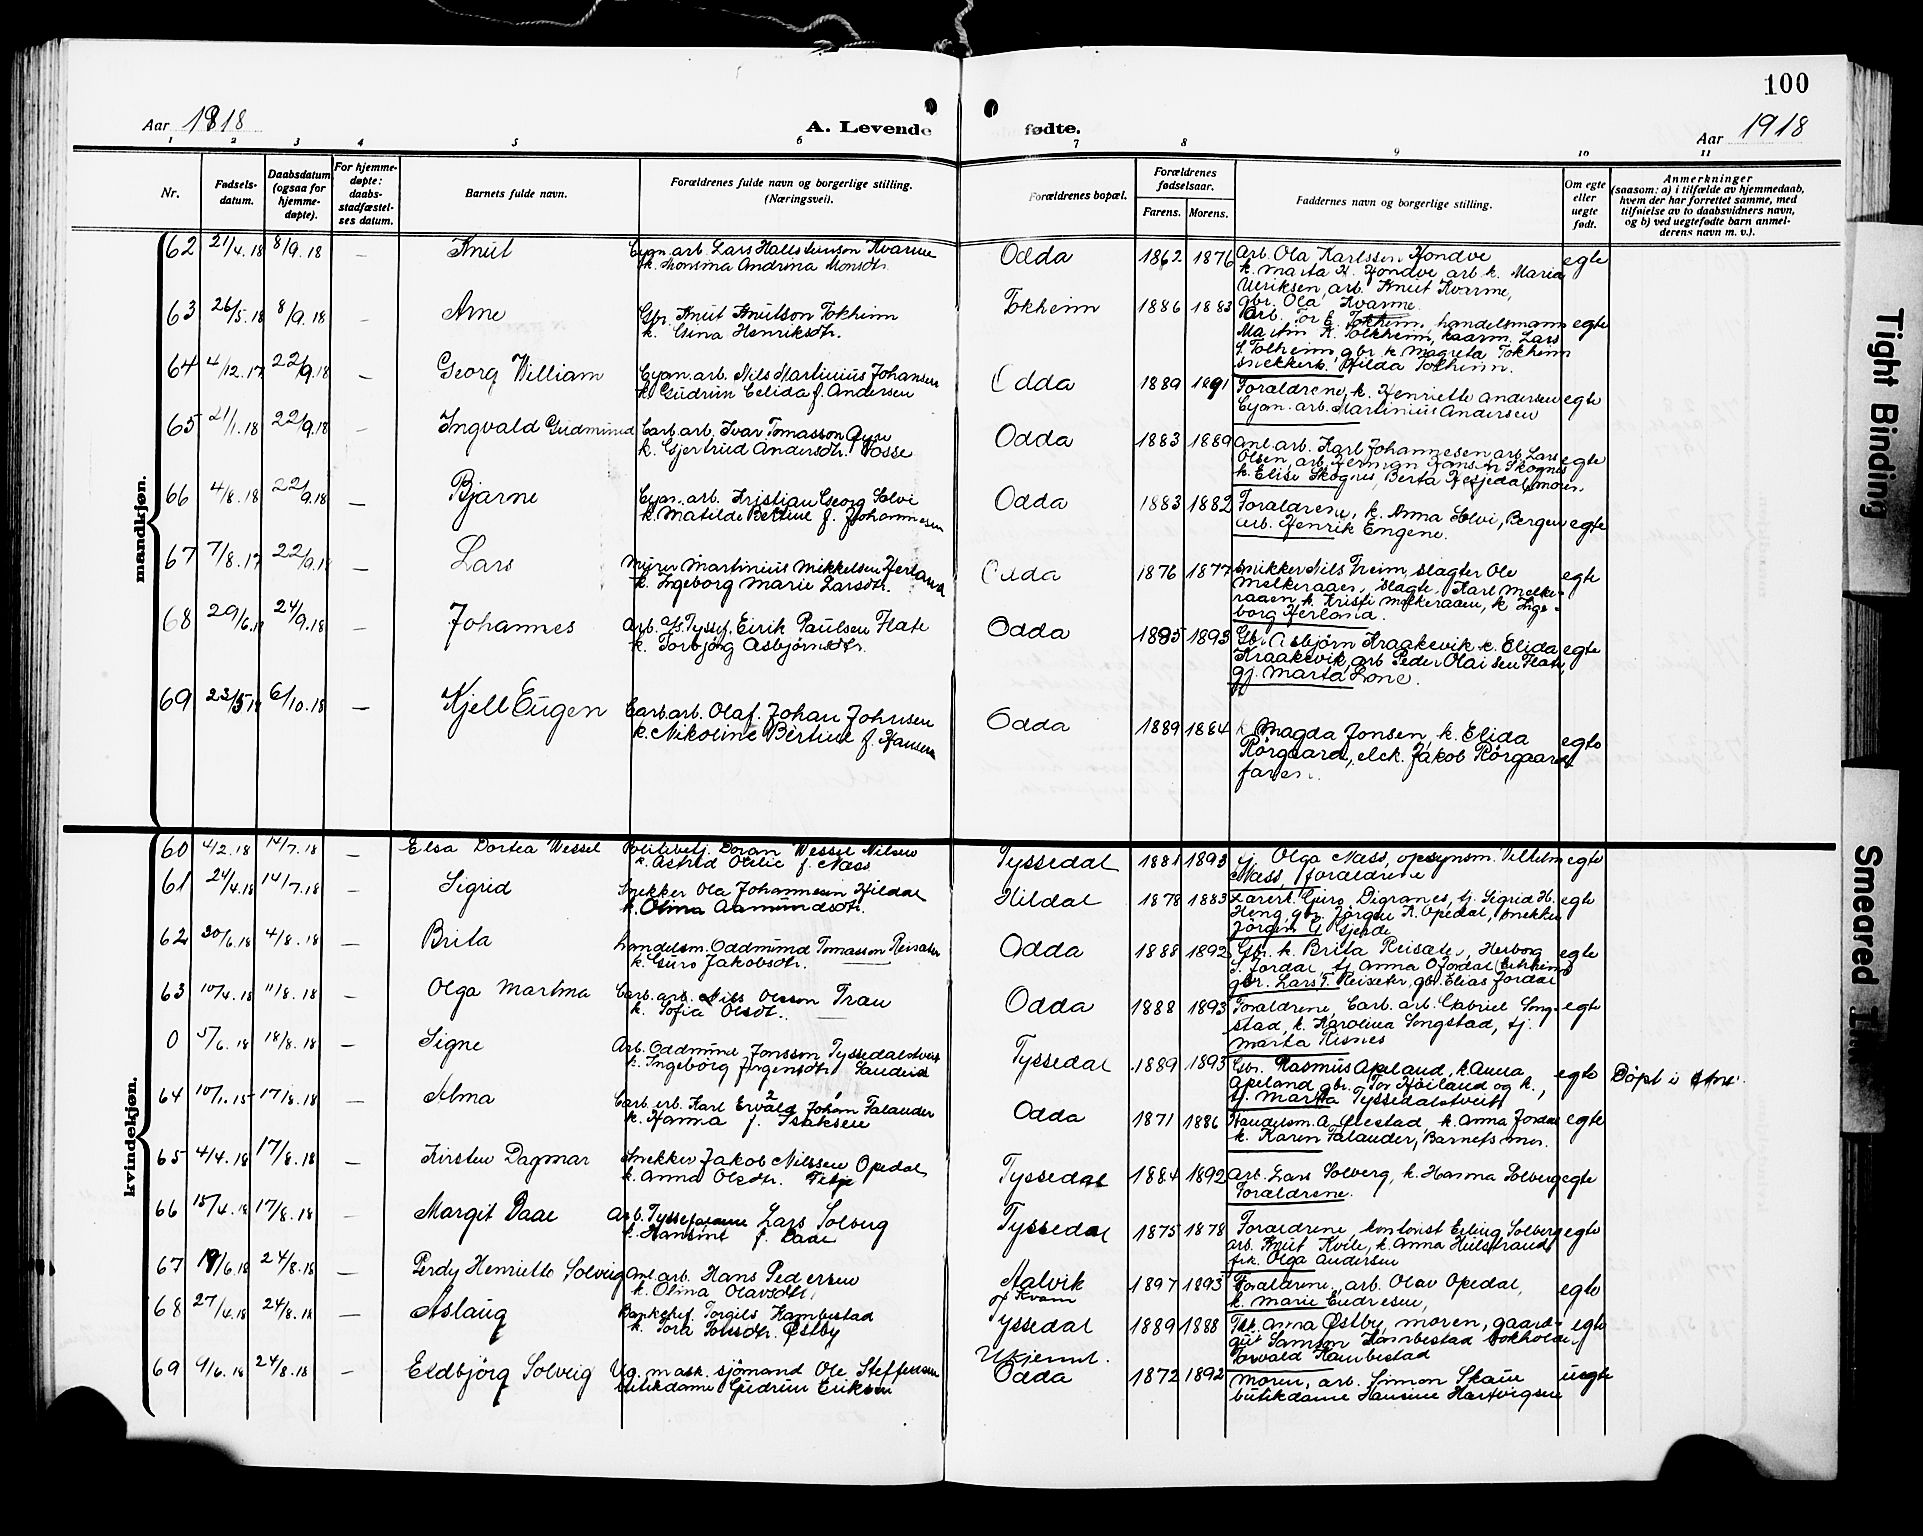 100
Aar 1918
A. Levende fødte.
Aar 1918
1 2 3 4 5 6 7 8 9 10 11
Nr.
Fødsels-
datum.
Daabsdatum
(ogsaa for
hjemme-
døpte).
For hjemme-
døpte:
daabs-
stadfæstel-
ses datum.
Barnets fulde navn.
Forældrenes fulde navn og borgerlige stilling.
(Næringsvei).
Forældrenes bopæl.
Forældrenes
fødselsaar.
Farens. Morens.
Faddernes navn og borgerlige stilling.
Om egte
eller
uegte
født.
Anmerkninger
(saasom: a) i tilfælde av hjemmedaab,
hvem der har forrettet samme, med
tilføielse av to daabsvidners navn,
og b) ved uegtefødte barn anmel-
derens navn m. v.).
mandkjøn.
62 21/4.18 8/9.18 – Knut
Cyan. arb. Lars Hallsteinson Kvarme
k. Monsina Andrina Monsdtr.
Odda 1862 1876
Arb. Ola Karlssen Hondve
k. Marta K. Hondve arb. k. Maria
Ulriksen, arb. Knut Kvarme,
gbr. Ola Kvarme
egte
63 26/5.18 8/9.18 – Arne
Gbr. Knut Knutson Tokheim
k. Gina Henriksdtr.
Tokheim 1886 1883
Arb. Tor E. Tokheim, handelsmann
Martin K. Tokheim, kaarm. Lars
S. Tokheim, gbr. k. Magreta Tokheim
snekkerk. Hilda Tokheim.
egte
64 4/12.17 22/9.18 – Georg William
Cyan. arb. Nils Martinius Johansen
k. Gudrun Celida f. Andersen
Odda 1889 1891
Foraldrene, k. Henriette Andersen
Cyan. arb. Martinius Andersen
egte
65 21/1.18 22/9.18 – Ingvald Gudmund
Carb. arb. Ivar Tomasson
k. Gjertrud Andersdtr. Vosse
Odda 1883 1889
Anl. arb. Karl Johannesen arb. Lars
Olsen, arb. Herman Hansen Skognes
k. Elise Skognes, Berta Hesjedal, moren.
egte
66 4/8.18 22/9.18 – Bjarne
Cyan. arb. Kristian Georg Solvi
k. Matilde Bertine f. Johannesen
Odda 1883 1882
Foraldrene, k. Anna Solvi, Bergen
arb. Henrik Engene.
egte
67 7/8.17 22/9.18 – Lars
Murer Martinius Mikkelsen Herland
k. Ingeborg Marie Larsdtr.
Odda 1876 1877
Snikker Nils Freim, slagter Ole
Melkeraaen, slagte. Karl Melke-
raaen k. Kristi Melkeraaen, k. Inge-
borg Herland.
egte
68 29/6.18 24/9.18 – Johannes
Arb. Eirik Paulsen Flate
k. Torbjørg Asbjørnsdtr.
Odda 1895 1893
Gbr. Asbjörn Kraakevik k. Elida
Kraakevik, arb. Peder Olaisen Flate,
gj. Marta Lone.
egte
69 23/5.18 6/10.18 – Kjell Eugen
Carb. arb. Olaf Johan Johnsen
k. Nikoline Bertine f. Hansen
Odda 1889 1884
k. Magda Jonsen, k. Elida
Rörgaard, elek. Jakob Rörgaard
faren.
egte
kvindekjøn.
60 4/2.18 14/7.18 – Elsa Dortea Wessel
Politibetj. Doran Wessel Nilsen
k. Astrid Otilie f. Næss
Tyssedal 1881 1893
tj. Olga Næss, opsynsm. Vilhelm
Næss, foraldrene
egte
61 24/4.18 14/7.18 – Sigrid
Snekker Ola Johannesen Hildal
k. Olina Aamundsdtr.
Hildal 1878 1883
Lærerk. Guro Digranes, tj. Sigrid H.
Heng, gbr. Jörgen K. Opedal, snekker
Jörgen G. Gjerde
egte
62 30/6.18 4/8.18 – Brita
Handelsm. Oddmund Tomasson Reisæter
k. Guro Jakobsdtr.
Odda 1888 1892
Gbr. k. Brita Reisæte, Herborg
S. Jordal, tj. Anna O. Jordal
gbr. Lars T. Reisæter, gbr. Elias Jordal
egte
63 10/4.18 11/8.18 – Olga Martina
Carb. arb. Nils Olsson Trau
k. Sofia Olsdt.
Odda 1888 1893
Foraldrene, Carb. arb. Gabriel Song-
stad, k. Karolina Songstad, tj.
Marta Risnes
egte
0 5/6.18 18/8.18 – Signe
Arb. Oddmund Jonsson Tyssedalstveit
k. Ingebörg Jørgensdtr. Saudeid
Tyssedal 1889 1893
Gbr. Rasmus Apeland, k. Anna
Apeland, gbr. Tor Høiland og k.,
tj. Marta Tyssedalstveit
egte Döpt i
64 10/1.15 17/8.18 – Alma
Carb. arb. Karl Ervald Johan Falander
k. Hanna f. Isaksen
Odda 1871 1886
Handelsm. A. Ølestad, k. Anna Jordal
k. Karin Falander, Barnets mor.
egte
65 4/4.18 17/8.18 – Kirsten Dagmar
Snekker Jakob Nilssen Opedal
k. Anna Olsdtr.
Tyssedal 1884 1892
Arb. Lars Solverg, k. Hanna Solverg
Foraldrene.
egte
66 15/4.18 17/8.18 – Margit Daae
Arb. Tyssefaldene Lars Solberg
k. Hansine f. Daae
Tyssedal 1875 1878
Foraldrene, kontorist Erling Solberg
arb. Knut Kvile, k. Anna Heilstrand
frk. Olga Andersen
egte
67 19/6.18 24/8.18 – Perdy Henriette Solveig
Anl. arb. Hans Pedersen
k. Olina Olavsdtr.
Aalvik
pr Kvam
1897 1893
Foraldrene, arb. Olav Opedal,
k. Marie Endresen,
egte
68 27/4.18 24/8.18 – Aslaug
Bankchef. Torgils Kambestad
k. Tora Tonsdtr. Østby
Tyssedal 1889 1888
Tsk. Anna Østby, moren, gaard-
gut Samson Kambestad bokholder
Torvald Kambestad
egte
69 9/6.18 24/8.18 – Eldbjörg Solveig
Ug. mask. sjömand Ole Steffensen
butikdame Gudrun Eriksen
Ukjennt.
Odda 1872 1892
Moren, arb. Simon Skaue
butikdame Hansine Hartvigsen
uegte
Tight Binding
Smeared